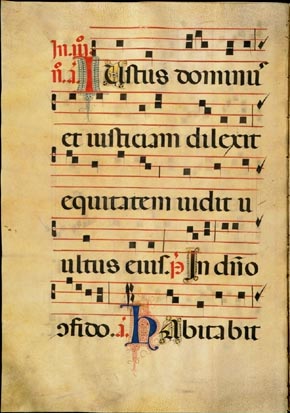 In. iijº
ñ. a. Iustus dominuˢ
et iusticiam dilexit
equitatem uidit u
ultus eius. p̄ In dño
ↄfido. a. Habitabit